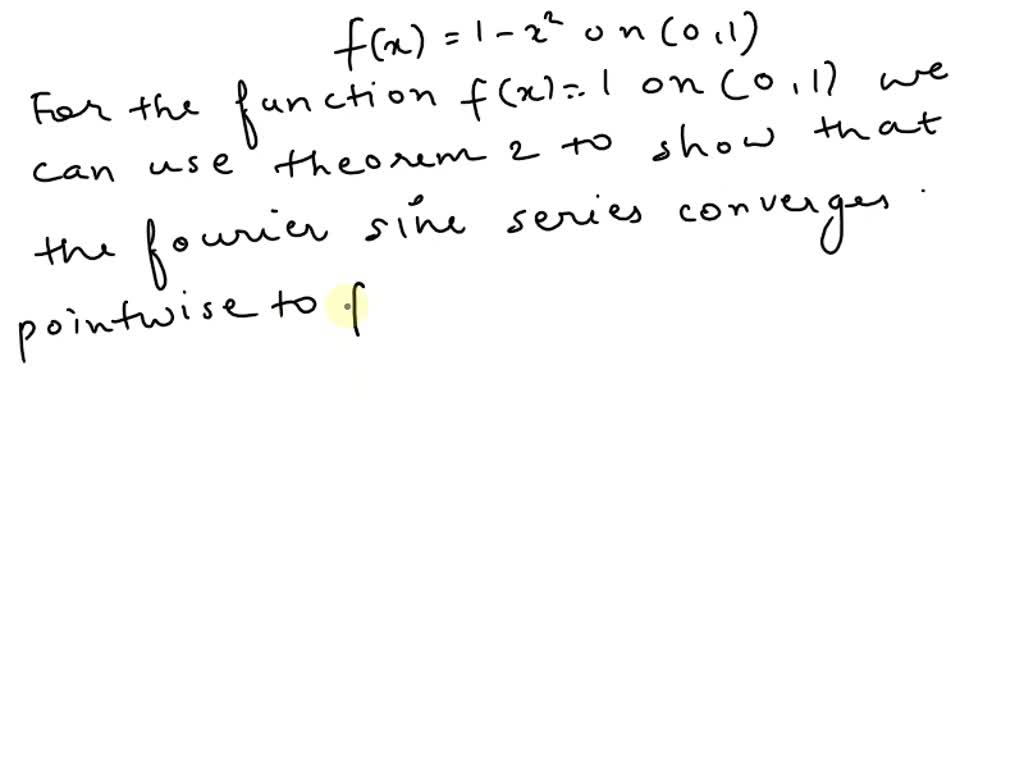 f(x) = 1 - x² on (0,1)
For the function f(x)=1 on (0,1) we
can use theorem 2 to show that
the fourier sine series converges
pointwise to f